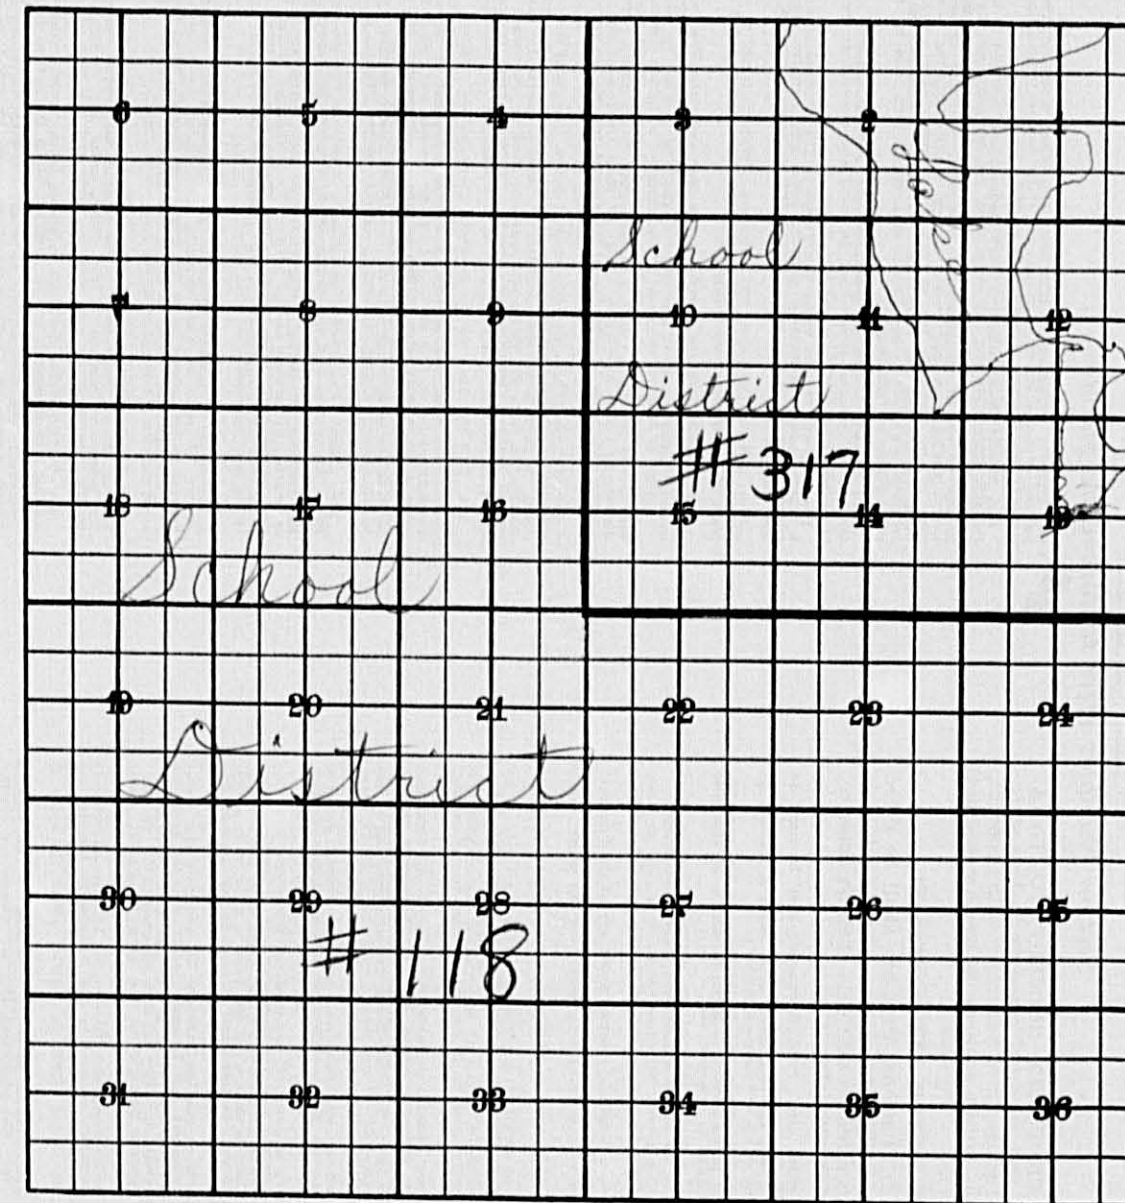 6 5 4 3 2 1
Lake
School
7 8 9 10 11 12
District
# 317
18 17 16 15 14 13
School
19 20 21 22 23 24
District
30 29 28 27 26 25
# 118
31 32 33 34 35 36